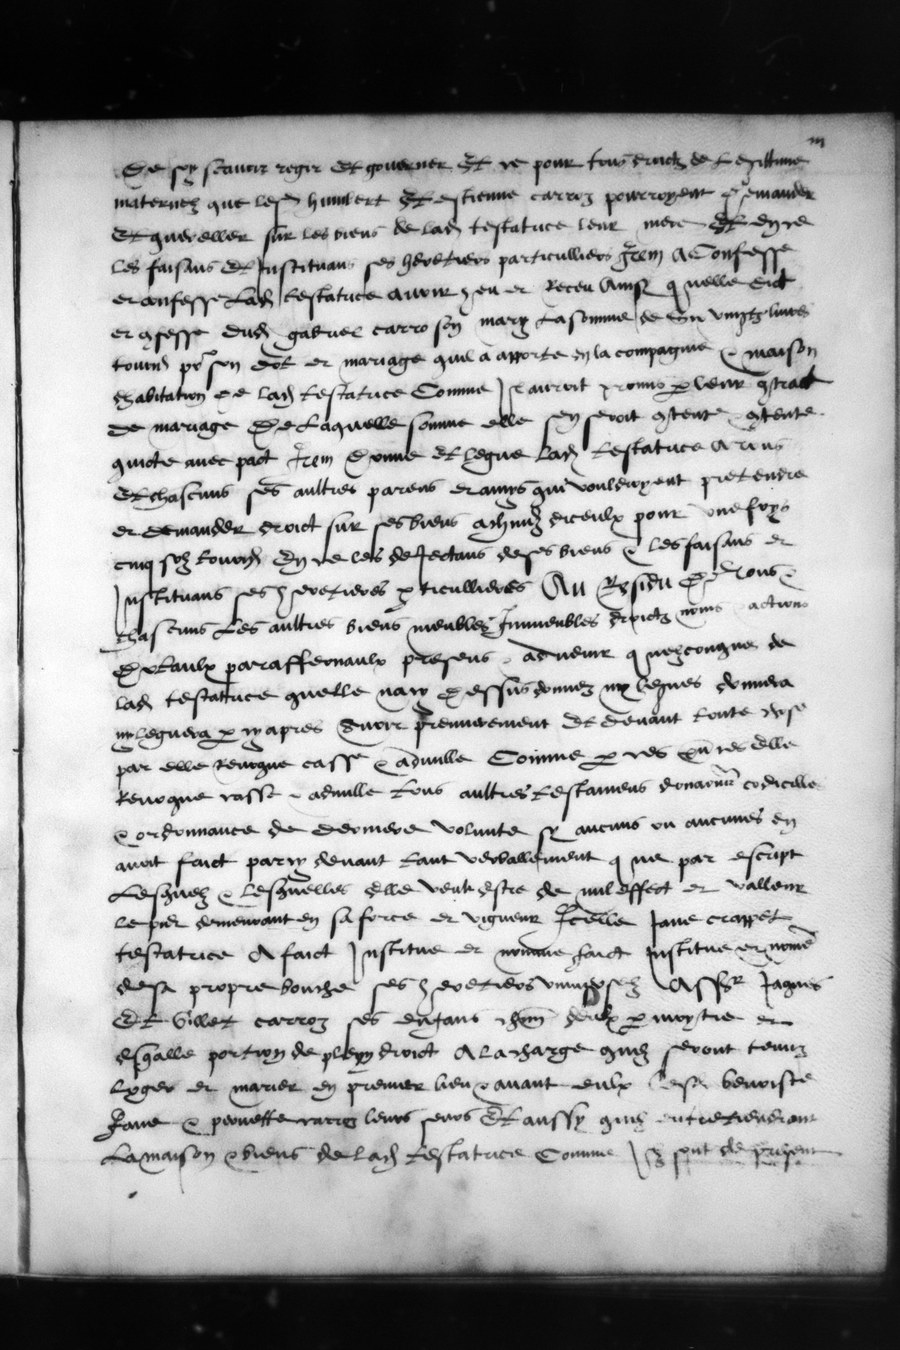 m
De soy scavoir regir Et gouverner Et ce pour tous droictz de Legittime
maternelz que lesd humbert Et estienne carroz pourroyent demander
Et quereller sur les biens de lad testatrice leur mere Et en ce
les faisans Et Instituans ses heretiers particulliers Item A Confesse
et confesse Lad testatrice avoir heu et Receu Ainsi quelle dict
et cfesse dud gabriel carro son mary La somme de vingtz livres
tourn po son dot et mariage quil a apporte en la compagnie & maison
dhabitation de lad testatrice Comme Il auroit promis par leur contract
de mariage De Laquelle somme elle sen seroit contente contente
quicte avec pact Item Donne Et legue Lad testatrice A tous
Et chascuns ses aultres parens et amys qui vouldroyent pretendre
et demander droict sur ses biens a chung diceulx pour une foys
cinq solz tourn En ce les dejectans de ses biens & les faisans et
Instituans ses heretieres particullieres Au Residu De tous &
chascuns Les aultres biens meubles Immeubles droictz noms & actions
Dotaulx parraffernaulx presens & advenir quelzconque de
lad testatrice quelle nay Dessus donnez ny legues donnera
ny leguera par cy apres Avoir premierement Et devant toute chose
par elle Revoque casse & adnulle Comme par ces presentes elle
Revoque casse & adnulle tous aultres testamens donations codicilles
& ordonnance de derniere volunte sy aucuns ou aucunes en
avoit faict par cy devant tant verballement que par escript
Lesquelz & Lesquelles elle veult estre de nul effect et valleur
le pnt demeurant en sa force et vigueur Icelle Jane crappet
testatrice A faict Institue et nomme faict Institue et nomme
de sa propre bouche ses heretiers universelz Assr Jaques
Et Gillet carroz ses enfans chun deulx par moytie et
esgalle portion de pleyn droict A la charge quilz seront tenuz
loger et marier en premier lieu & avant eulx lesd benoiste
Jane & pernette carroz leurs seurs Et aussy quilz entretiendront
La maison & biens de lad testatrice Comme Ilz sont de present